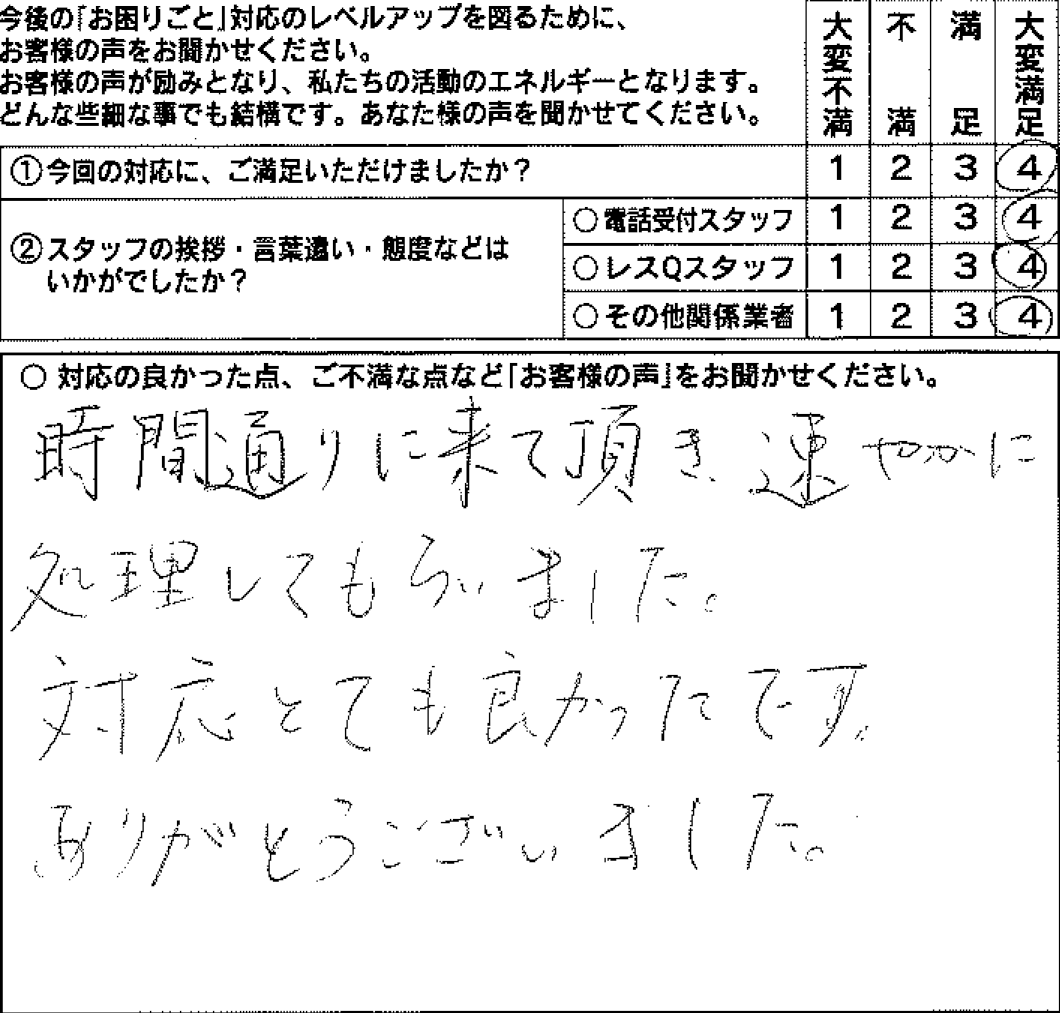 今後の「お困りごと」対応のレベルアップを図るために、
お客様の声をお聞かせください。
お客様の声が励みとなり、私たちの活動のエネルギーとなります。
どんな些細な事でも結構です。あなた様の声を聞かせてください。
大変不満 不満 満足 大変満足
①今回の対応に、ご満足いただけましたか？ 1 2 3 4
②スタッフの挨拶・言葉遣い・態度などは
いかがでしたか？
○電話受付スタッフ 1 2 3 4
○レスQスタッフ 1 2 3 4
○その他関係業者 1 2 3 4
○ 対応の良かった点、ご不満な点など「お客様の声」をお聞かせください。
時間通りに来て頂き、速やかに
処理してもらいました。
対応とても良かったです。
ありがとうございました。